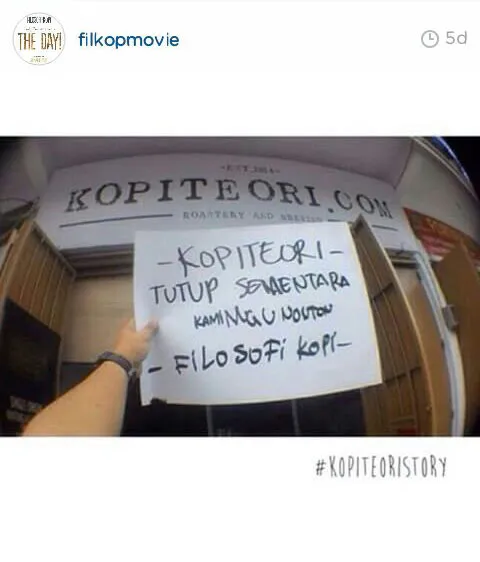 THE DAY!
filkopmovie
5d
KOPITEORI.COM
ROASTERY AND
-KOPITEORI-
TUTUP SEMENTARA
KAMI MAU NONTON
-FILOSOFI KOPI-
#KOPITEORISTORY